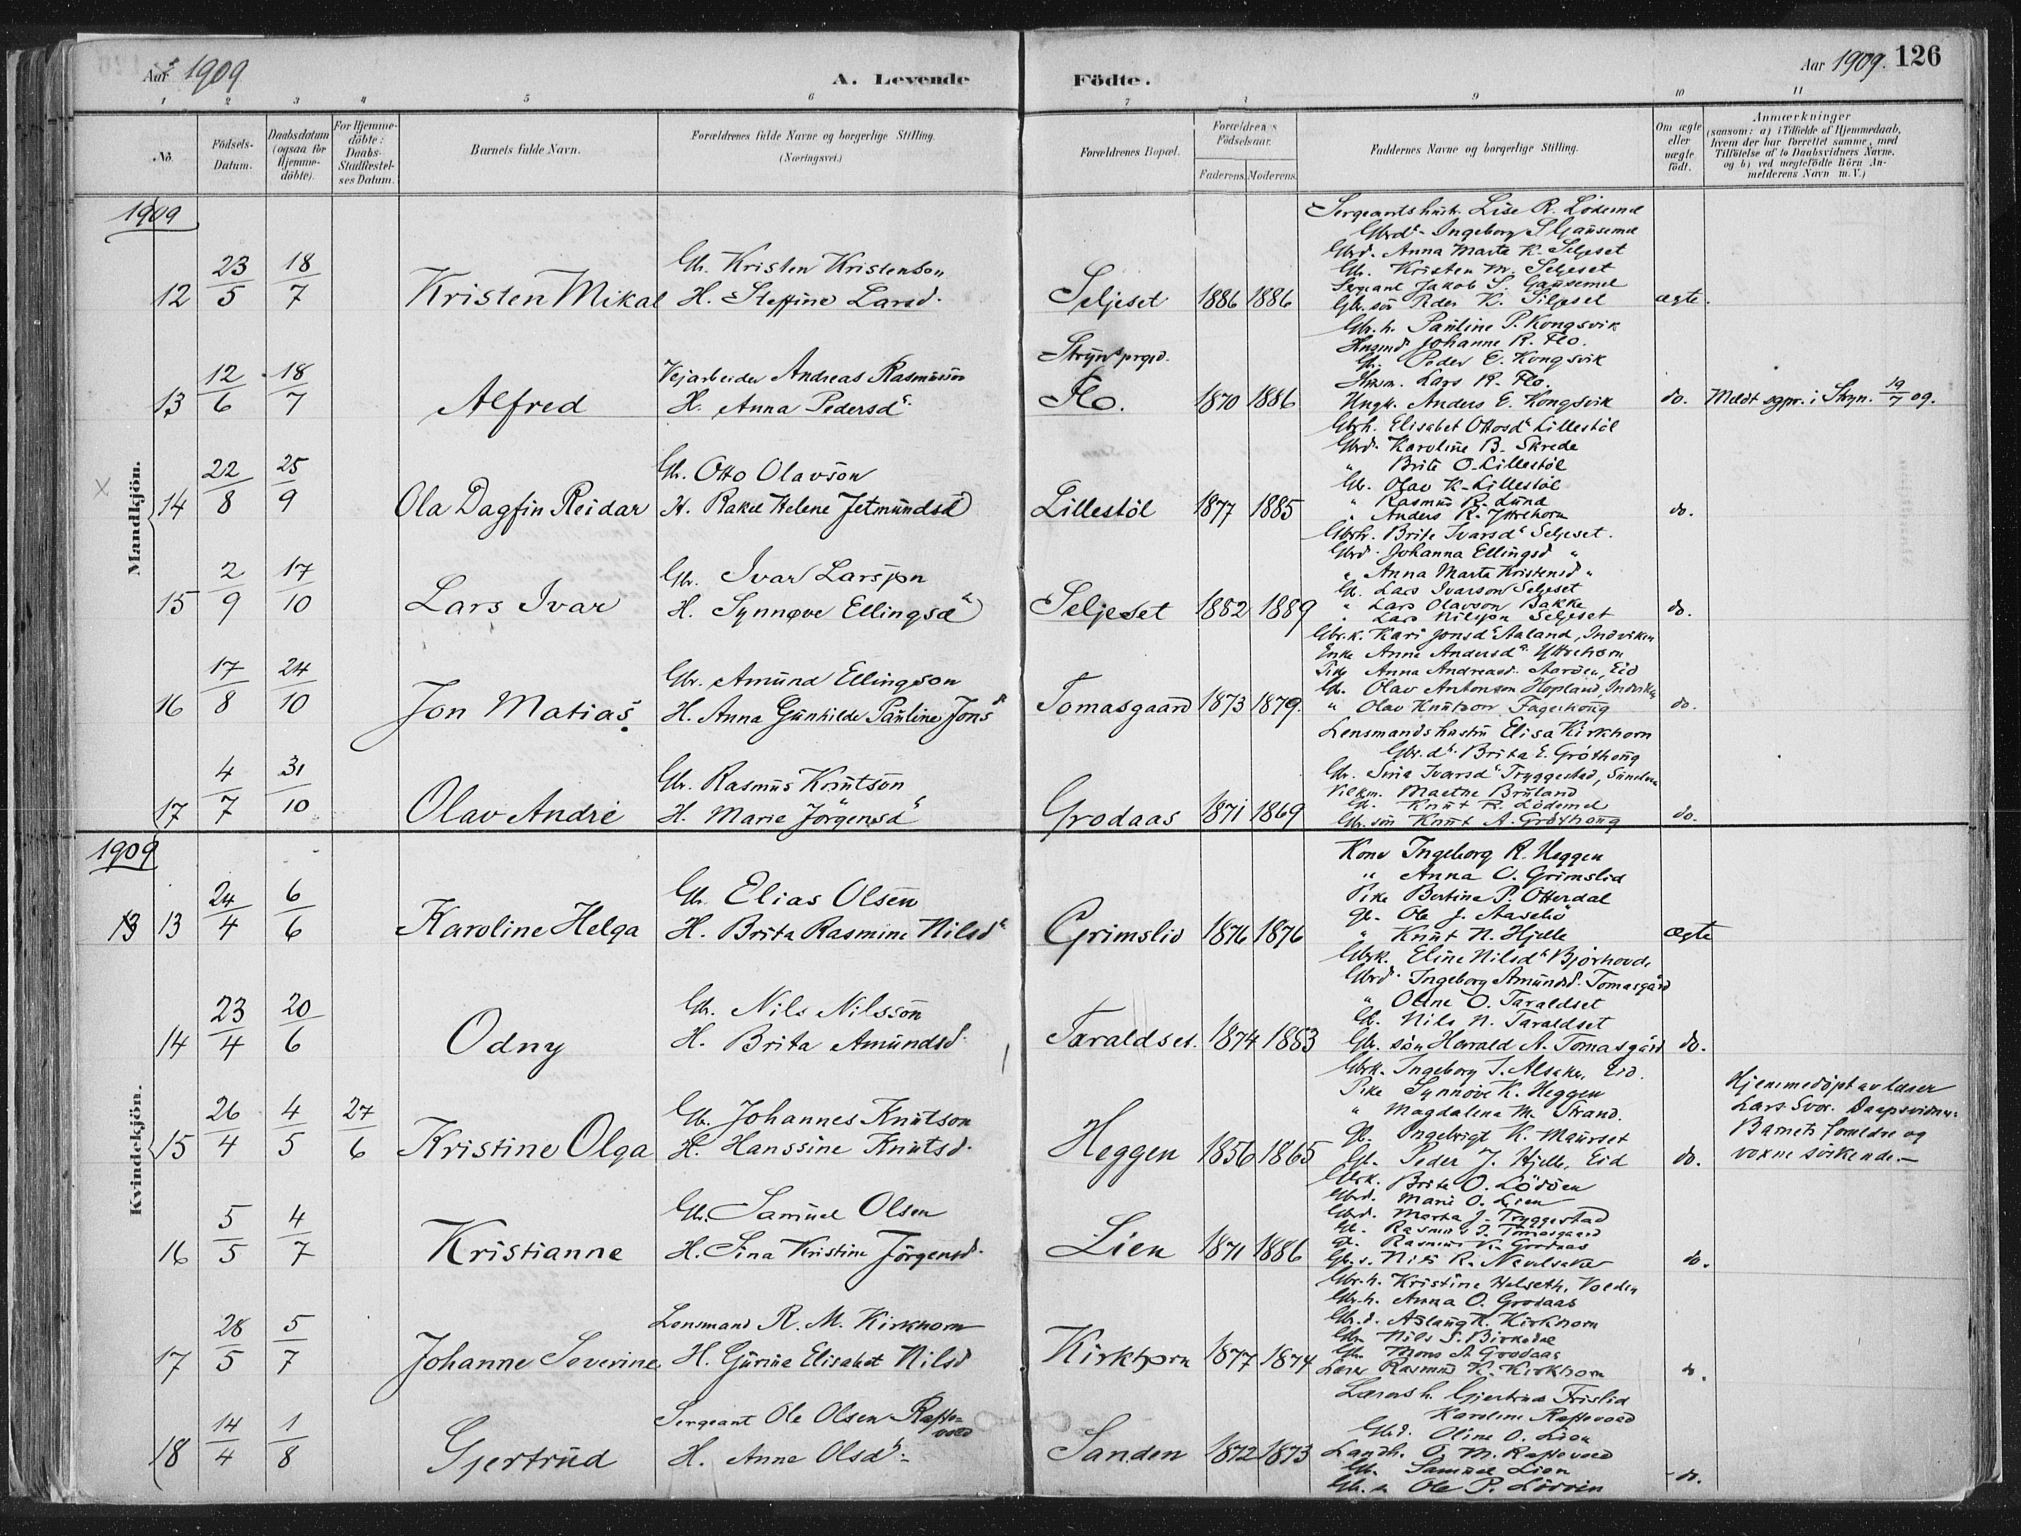 Aar 1909
A. Levende Födte.
Aar 1909. 126
1 2 3 4 5 6 7 8 9 10 11
No.
Födsels-Datum.
Daabsdatum (ogsaa for Hjemme-döbte).
For Hjemme-döbte: Daabs-Stadfæstel-ses Datum.
Barnets fulde Navn.
Forældrenes fulde Navne og borgerlige Stilling. (Næringsvei.)
Forældrenes Bopæl.
Forældrenes Födselsaar.
Faderens. Moderens.
Faddernes Navne og borgerlige Stilling.
Om ægte eller uægte födt.
Anmærkninger
(saasom: a) i Tilfælde af Hjemmedaab, hvem der har forrettet samme, med Tilföielse af to Daabsvidners Navne, og b) ved uægtefödte Börn An-melderens Navn m. V.)
Mandkjön.
1909
12 23/5 18/7 Kristen Mikal
Gbr. Kristen Kristenson
H. Steffine Larsd.
Seljeset 1886 1886
Sergeantshustr. Lise R. Lödemel
Gbrd. Ingeborg S. Gausemel
Gbrd. Anna Marta K. Seljeset
Gbr. Kristen M. Seljeset
Sergeant Jakob S. Gausemel
Gbr. sön Peder K. Seljeset
ægte.
13 12/6 18/7 Alfred
Vejarbeider Andreas Rasmusson
H. Anna Pedersd.
Stryns prgd.
Flo. 1870 1886
Gbr. h. Pauline P. Kongsvik
Husmd. Johanne R. Flo.
Gbr. Peder E. Kongsvik
Husm. Lars R. Flo.
Ungk. Anders E. Kongsvik
do. Meldt sgpr. i Stryn. 19/7 09.
14 22/8 25/9 Ola Dagfin Reidar
Gbr. Otto Olavson
H. Rakel Helene Jetmundsd
Lillestöl 1877 1885
Gbrh. Elisabet Ottosd Lillestöl
Gbrd. Karoline B. Skrede
" Brite O. Lillestöl
Gbr. Olav K. Lillestöl
" Rasmus R. Lund
" Anders R. Yttrehorn
do.
15 2/9 17/10 Lars Ivar
Gbr. Ivar Larsson
H. Synnøve Ellingsd
Seljeset 1882 1889
Gbrh. Brite Ivarsd Seljeset.
Gbrd. Johanna Ellingsd "
" Anna Marta Kristensd "
Gbr. Lars Ivarson Seljeset
" Lars Olavson Bakke
" Lars Nilsson Seljeset
do.
16 17/8 24/10 Jon Matias
Gbr. Amund Ellingson
H. Anna Gunhilde Pauline Jonsd
Tomasgaard 1873 1879.
Gbr. k. Kari Jonsd Aaland, Indviken
Enke Anne Andersd Yttrehorn
Pike Anna Andreasd. Aarden, Eid
Gbr. Olav Antonson Hopland, Indviken
" Olav Knutson Fagerhoug
do.
17 4/7 31/10 Olav André
Gbr. Rasmus Knutson
H. Marie Jörgensd
Grodaas 1871 1869
Lensmandshustru Elisa Kirkhorn
Gbr. d. Brita E. Gröthoug
Gbr. Sina Ivarsd Tryggestad,
Gbr. Knut R. Lödemel
Gbr. sön Knut A. Gröthoug
do.
Kvindekjön.
1909
13 13 24/4 6/6 Karoline Helga
Gbr. Elias Olsen
H. Brita Rasmine Nilsd
Grimslid 1876 1876
Kone Ingeborg R. Heggen
" Anna O. Grimslid
Pike Bertine P. Otterdal
Gbr. Ole J. Aaseböl
" Knut N. Hjelle
ægte
14 23/4 20/6 Odny
Gbr. Nils Nilsson
H. Brita Amundsd.
Taraldset. 1874 1883
Gbrk. Eline Nilsd Bjørhovde
Gbrd. Ingeborg Amundsd. Tomasgård
" Oline O. Taraldset
Gb. Nils N. Taraldset
Gbr. sön Harald A. Tomasgård
do.
15 26/4 4/5 27/6 Kristine Olga
Gbr. Johannes Knutson
H. Hanssine Knutsd.
Heggen 1856 1865
Gbrk. Ingeborg J. Alsaker, Eid.
Pike Synnöve K. Heggen
" Magdalena M. Strand.
Gb. Ingebrigt K. Maurset
Gb. Peder J. Hjelle, Eid
do.
Hjemmedöpt av lærer
Lars Svor. Daapsvidner:
Barnets foreldre og
voxne söskende.—
16 5/5 4/7 Kristianne
Gbr. Samuel Olsen
H. Sina Kristine Jörgensd.
Lien 1871 1886
Gbrk. Brite O. Lödöen
Gbrd. Marie O. Lien
Gbrd. Marta J. Tryggestad
Gb. Rasmus J. Tomasgaard
Gb. Rasmus K. Grodaas
Gb. s. Nils R. Navelsaker
do.
17 28/5 5/7 Johanne Severine
Lensmand R. M. Kirkhorn
H. Gurina Elisabet Nilsd
Kirkhorn 1877 1874
Gbr. h. Kristine Helseth, Volden
Gbr. h. Anna O. Grodaas
Gbr. d. Aslaug R. Kirkhorn
Gbr. Nils S. Birkedal
Gbr. Mons A. Grodaas
Lærer Rasmus K. Kirkhorn
do.
18 14/4 1/8 Gjertrud
Sergeant Ole Olsen Raftevold
H. Anne Olsd.
Sanden 1872 1873
Lærersh. Gjertrud Frislid
Karoline Raftevold
Gbd. Oline O. Lien
Landh. O. M. Raftevold
Gbr. Samuel Lien
Gbr. s. Ole P. Lödöen
do.